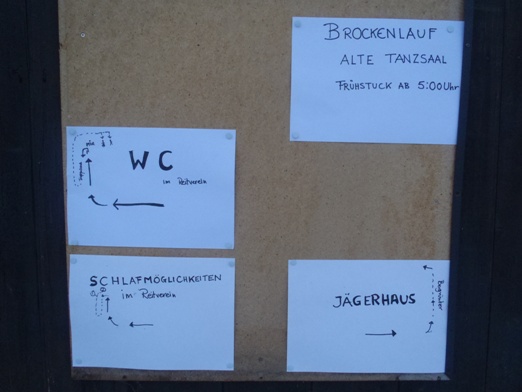 BROCKENLAUF
ALTE TANZSAAL
FRÜHSTUCK AB 5:00 Uhr
WC
im Reitverein
SCHLAFMÖGLICHKEITEN
im Reitverein
JÄGERHAUS